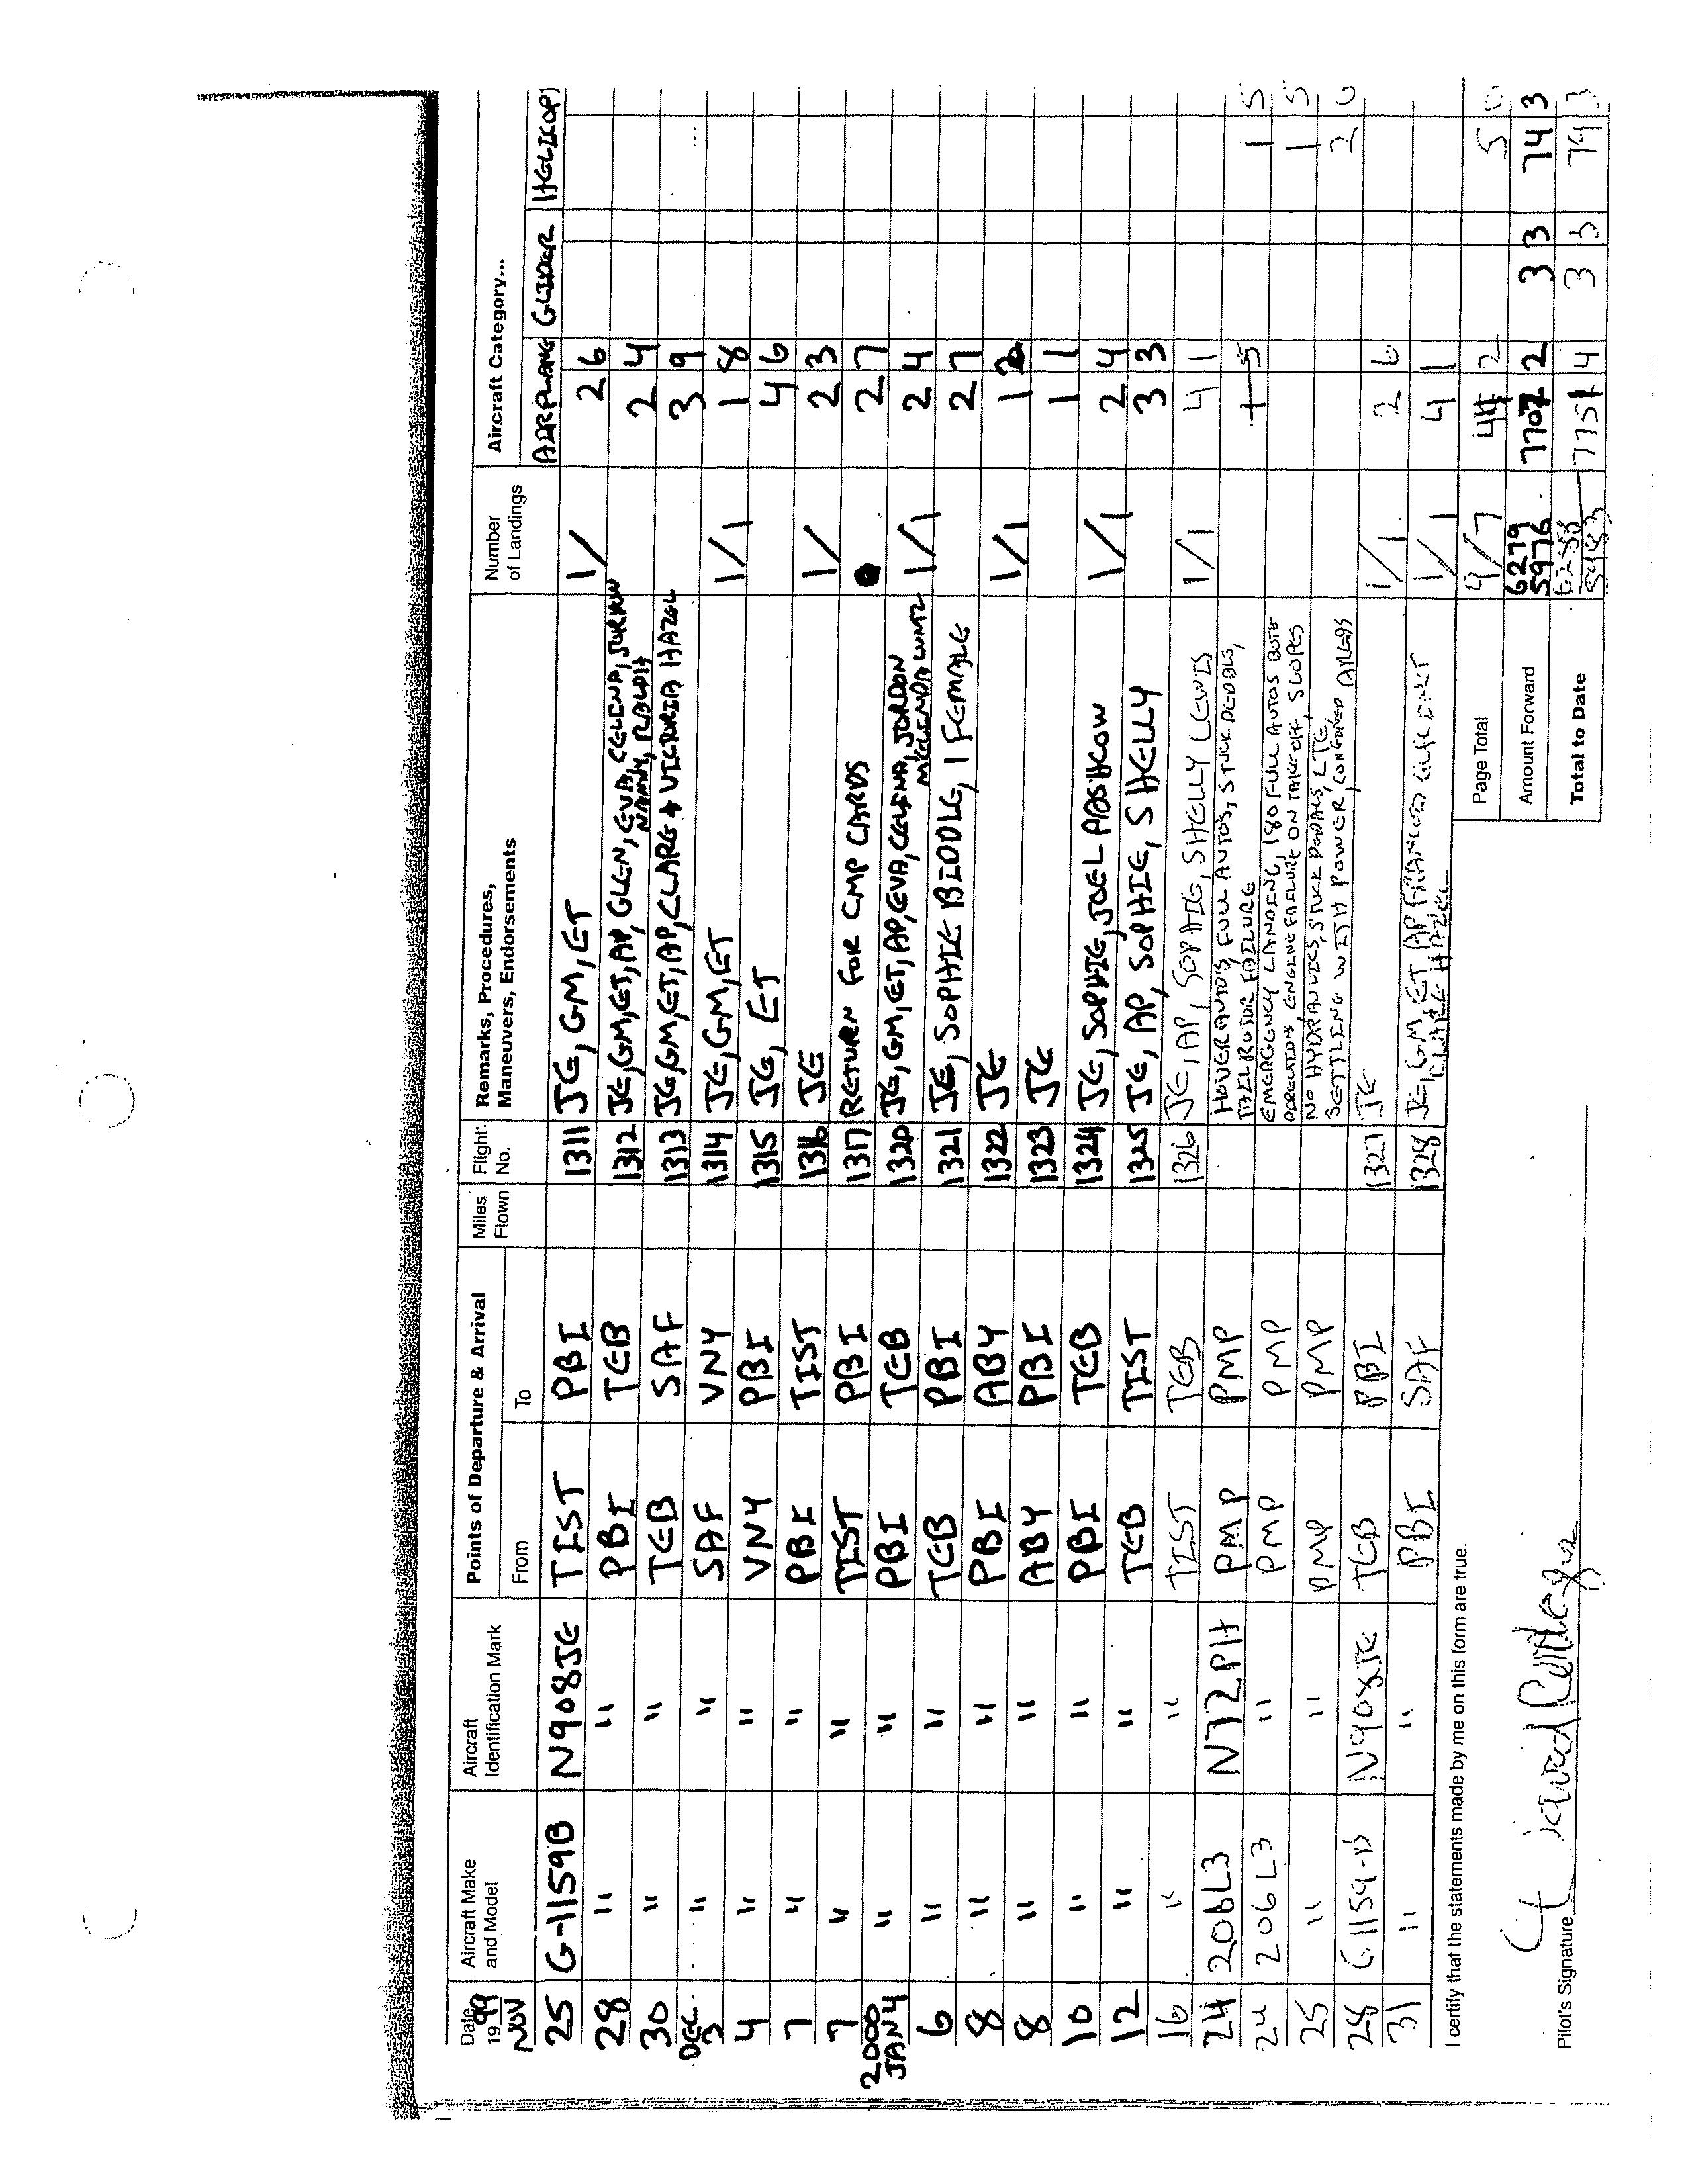 Date 19 99 Aircraft Make and Model Aircraft Identification Mark Points of Departure & Arrival Miles Flown Flight No. Remarks, Procedures, Maneuvers, Endorsements Number of Landings Aircraft Category...
NOV From To AIRPLANE GLIDER HELICOPT
25 G-1159B N908JE TIST PBI 1311 JE, GM, ET 1/ 2 6
28 " " PBI TEB 1312 JE, GM, ET, AP, GLEN, EVA, CELINA, JORDAN 2 4
NANNY, RALPH
30 " " TEB SAF 1313 JE, GM, ET, AP, CLARE + VICTORIA HAZEL 3 9
DEC 3 " " SAF VNY 1314 JE, GM, ET 1/1 1 8
4 " " VNY PBI 1315 JE, ET 4 6
7 " " PBI TIST 1316 JE 1/ 2 3
7 " " TIST PBI 1317 RETURN FOR CMP CARDS 2 7
2000
JAN 4 " " PBI TEB 1320 JE, GM, ET, AP, EVA, CELINA, JORDON 1/1 2 4
MELINDA LUNTZ
6 " " TEB PBI 1321 JE, SOPHIE BIDDLE, 1 FEMALE 2 7
8 " " PBI ABY 1322 JE 1/1 1 2
8 " " ABY PBI 1323 JE 1 1
10 " " PBI TEB 1324 JE, SOPHIE, JOEL PASHCOW 1/1 2 4
12 " " TEB TIST 1325 JE, AP, SOPHIE, SHELLY 3 3
16 " " TIST TEB 1326 JE, AP, SOPHIE, SHELLY LEWIS 1/1 4 1
24 206L3 N72PH PMP PMP HOVER AUTO'S, FULL AUTOS, STUCK PEDALS, 1 5
TAIL ROTOR FAILURE
24 206L3 " PMP PMP EMERGENCY LANDING, 180 FULL AUTOS BOTH 1 5
DIRECTIONS, ENGINE FAILURE ON TAKEOFF, SLOPES
25 " " PMP PMP NO HYDRAULICS, STUCK PEDALS, LTE, 2 0
SETTLING WITH POWER, CONFINED AREAS
28 G1159-B N908JE TEB PBI 1327 JE 1/1 2 6
31 " " PBI SAF 1328 JE, GM, ET, AP, 1/1 4 1
HAZEL
I certify that the statements made by me on this form are true.
Page Total 9/7 44 2 5 0
Amount Forward 6279 5976 7707 2 3 3 74 3
Total to Date 7751 4 3 3 79 3
Pilot's Signature